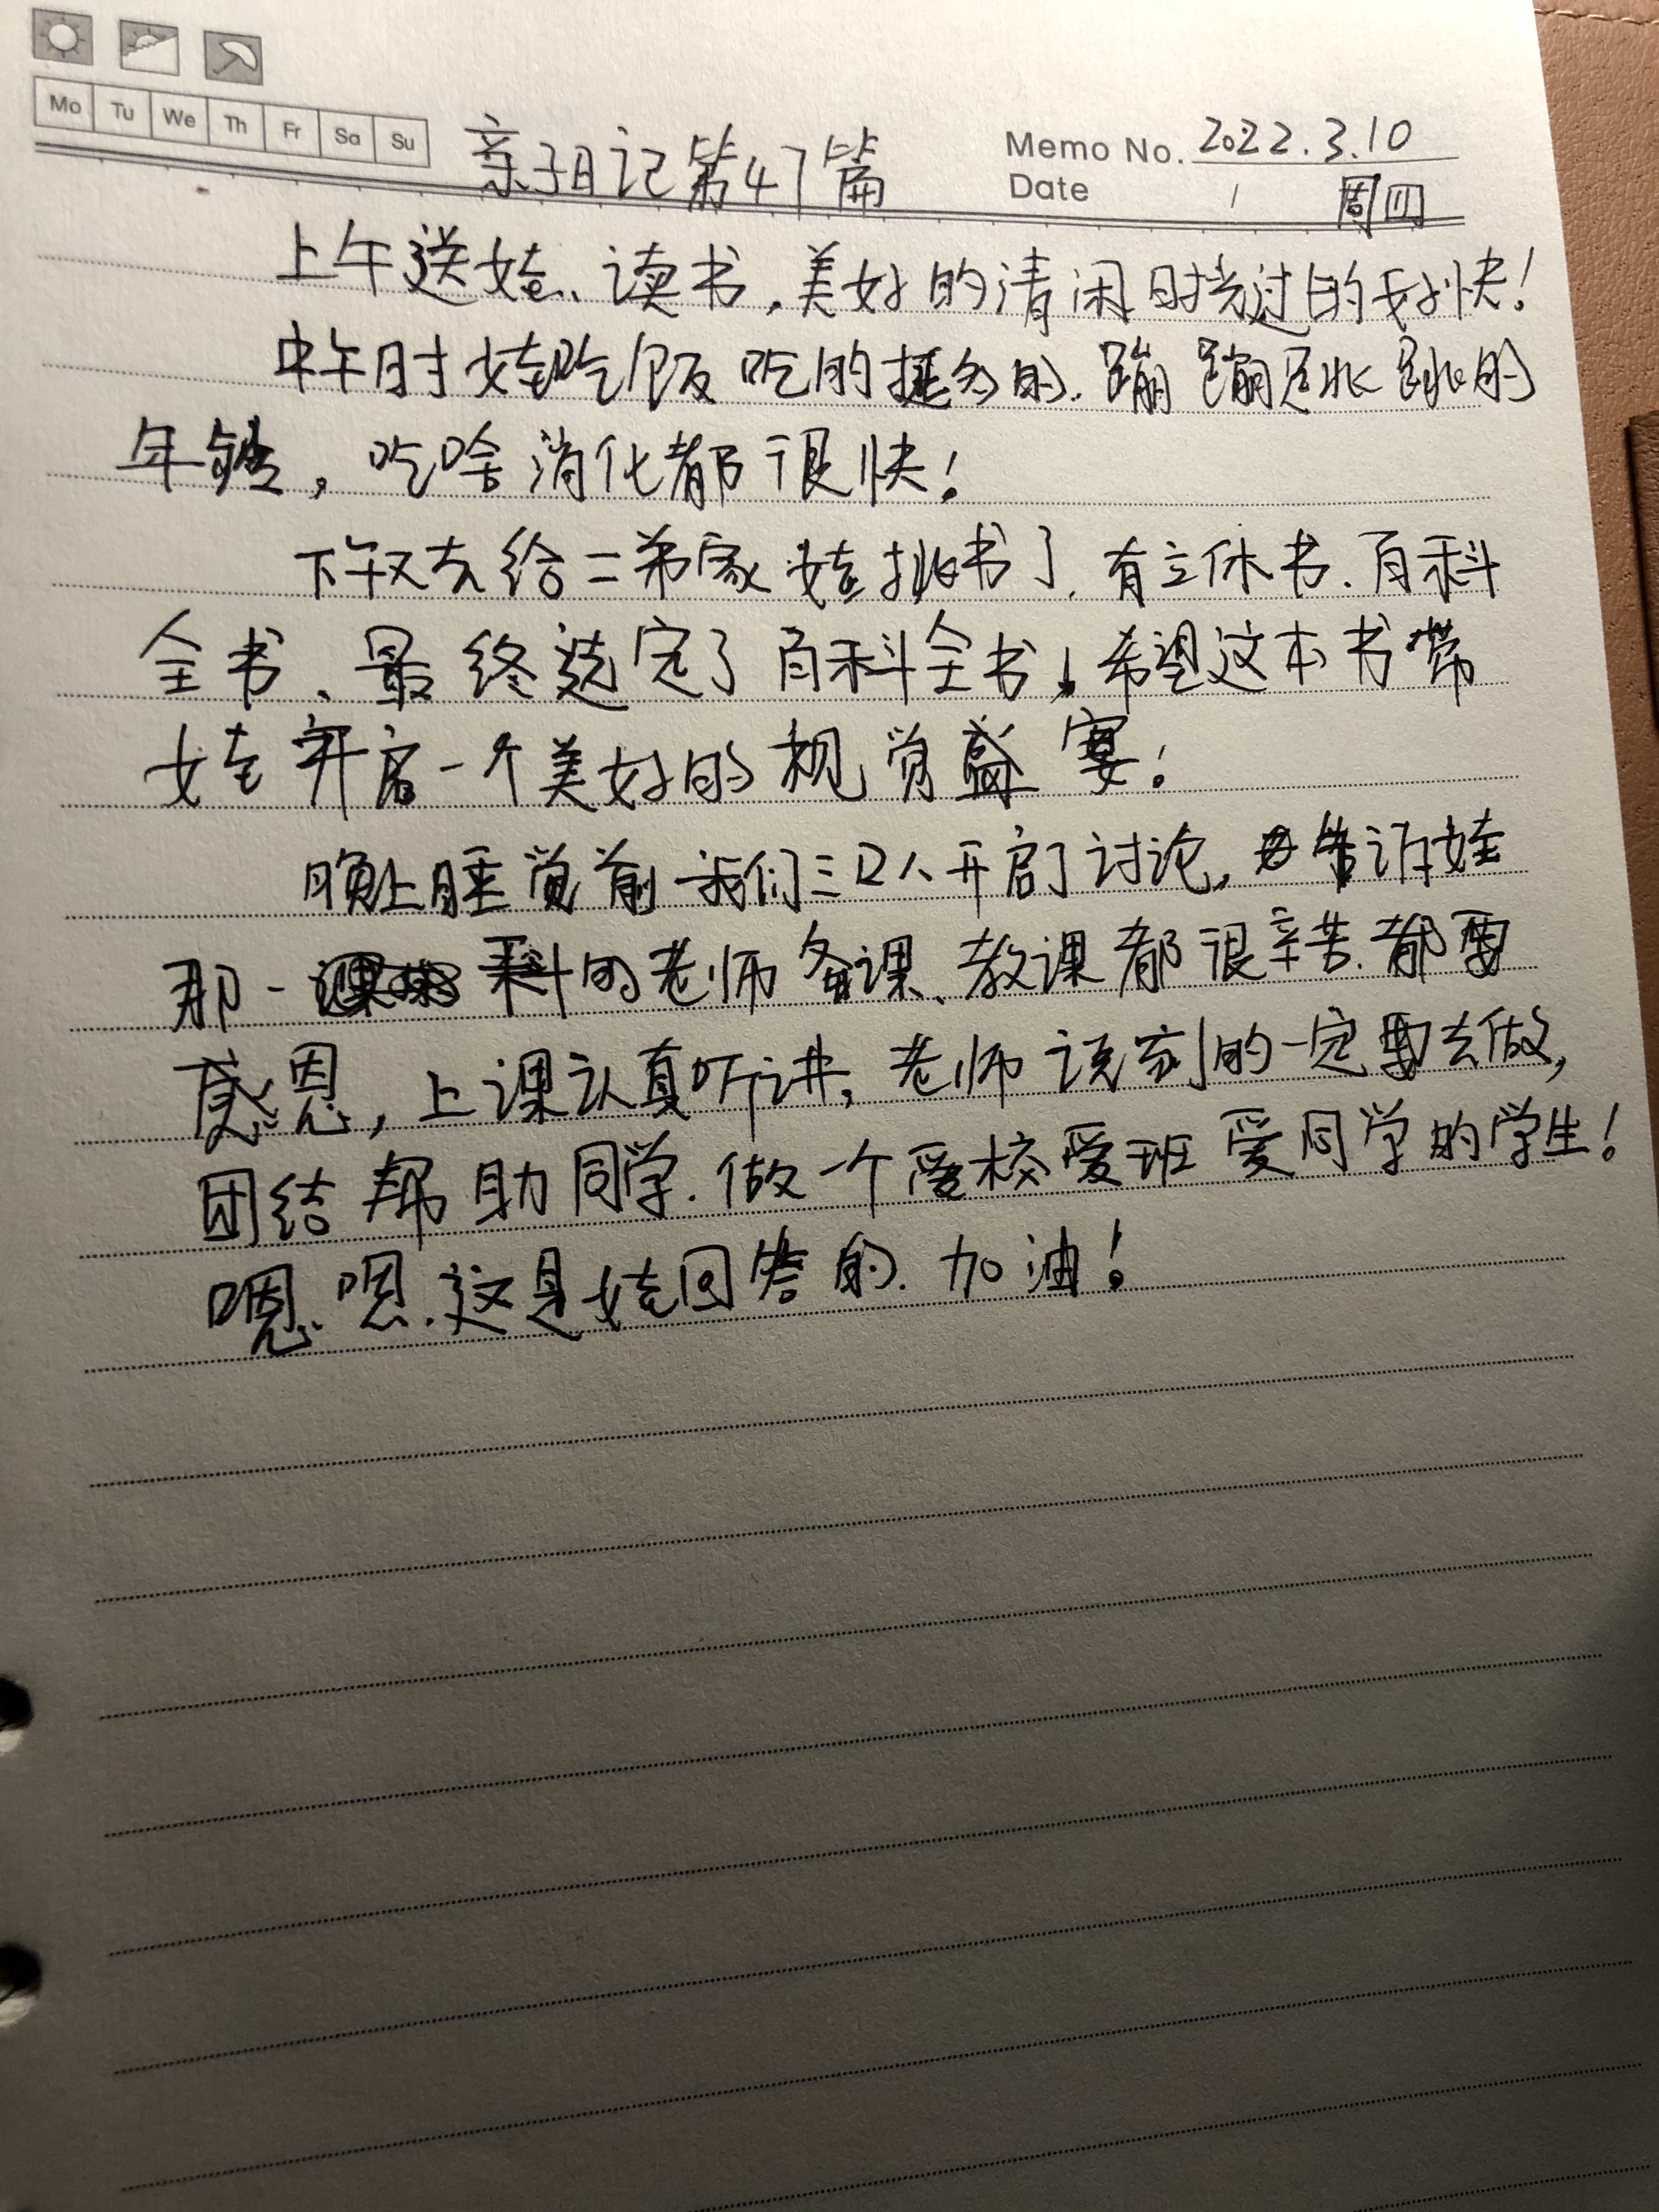 Mo Tu We Th Fr Sa Su
亲子日记第47篇
Memo No. 2022.3.10
Date / 周四
上午送娃、读书,美好的清闲时光过的好快!
中午时娃吃饭吃的挺多的.蹦蹦跳跳的
年龄,吃啥消化都很快!
下午又去给二弟家娃挑书了,有立体书.百科
全书、最终选定了百科全书!希望这本书带
娃开启一个美好的视觉盛宴!
晚上睡觉前我们三口人开启了讨论,告诉娃
那一科的老师备课、教课都很辛苦.都要
感恩,上课认真听讲,老师说到的一定要去做,
团结帮助同学.做一个爱校爱班爱同学的学生!
嗯.嗯.这是娃回答的.加油!